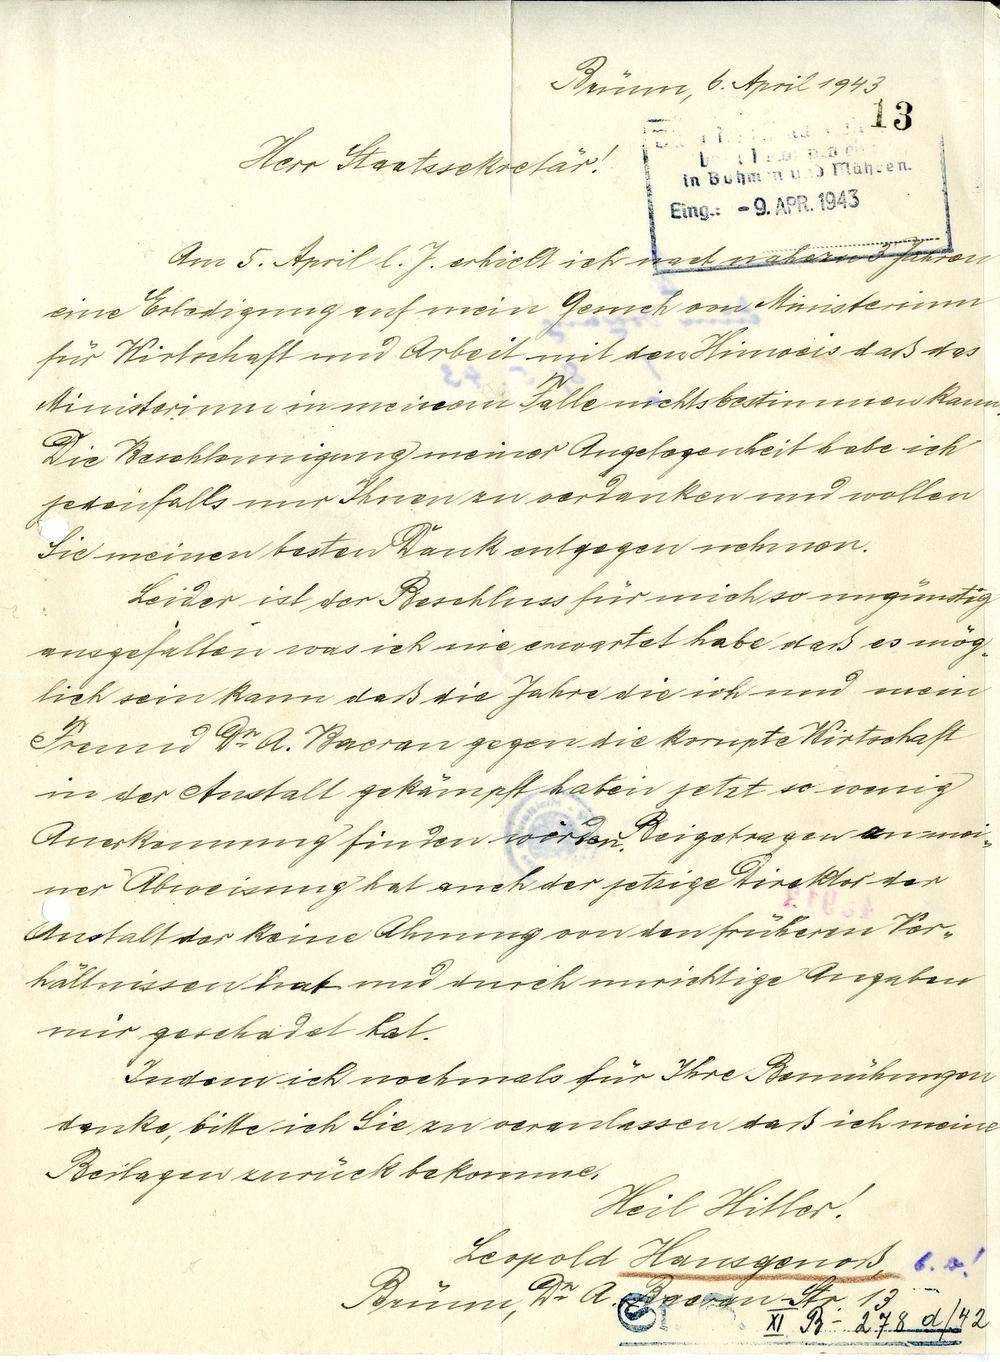 Brünn, 6. April 1943
13
Herr Staatssekretär!
in Böhmen und Mähren.
Eing.: -9. APR. 1943
Am 5. April l. J. erhielt ich nach nahezu 3 Jahren
eine Erledigung auf mein Gesuch von Ministerium
für Wirtschaft und Arbeit mit den Hinweis daß das
Ministerium in meinem Falle nichts bestimmen kann.
Die Beschleunigung meiner Angelegenheit habe ich
jedenfalls nur Ihnen zu verdanken und wollen
Sie meinen besten Dank entgegen nehmen.
Leider ist der Beschluss für mich so ungünstig
ausgefallen was ich nie erwartet habe daß es mög-
lich sein kann daß die Jahre die ich und mein
Freund Dr. A. Bacran gegen die korupte Wirtschaft
in der Anstalt gekämpft haben jetzt so wenig
Anerkennung finden würden. Beigetragen an mei-
ner Abweisung hat auch der jetzige Direktor der
Anstalt der keine Ahnung von den früheren Ver-
hältnissen hat und durch unrichtige Angaben
mir geschadet hat.
Indem ich nochmals für Ihre Bemühungen
danke, bitte ich Sie zu veranlassen daß ich meine
Beilagen zurück bekomme.
Heil Hitler!
Leopold Hausgenoß,
Brünn, Dr. A. Bacran Str. 13
XI B - 278 d/42